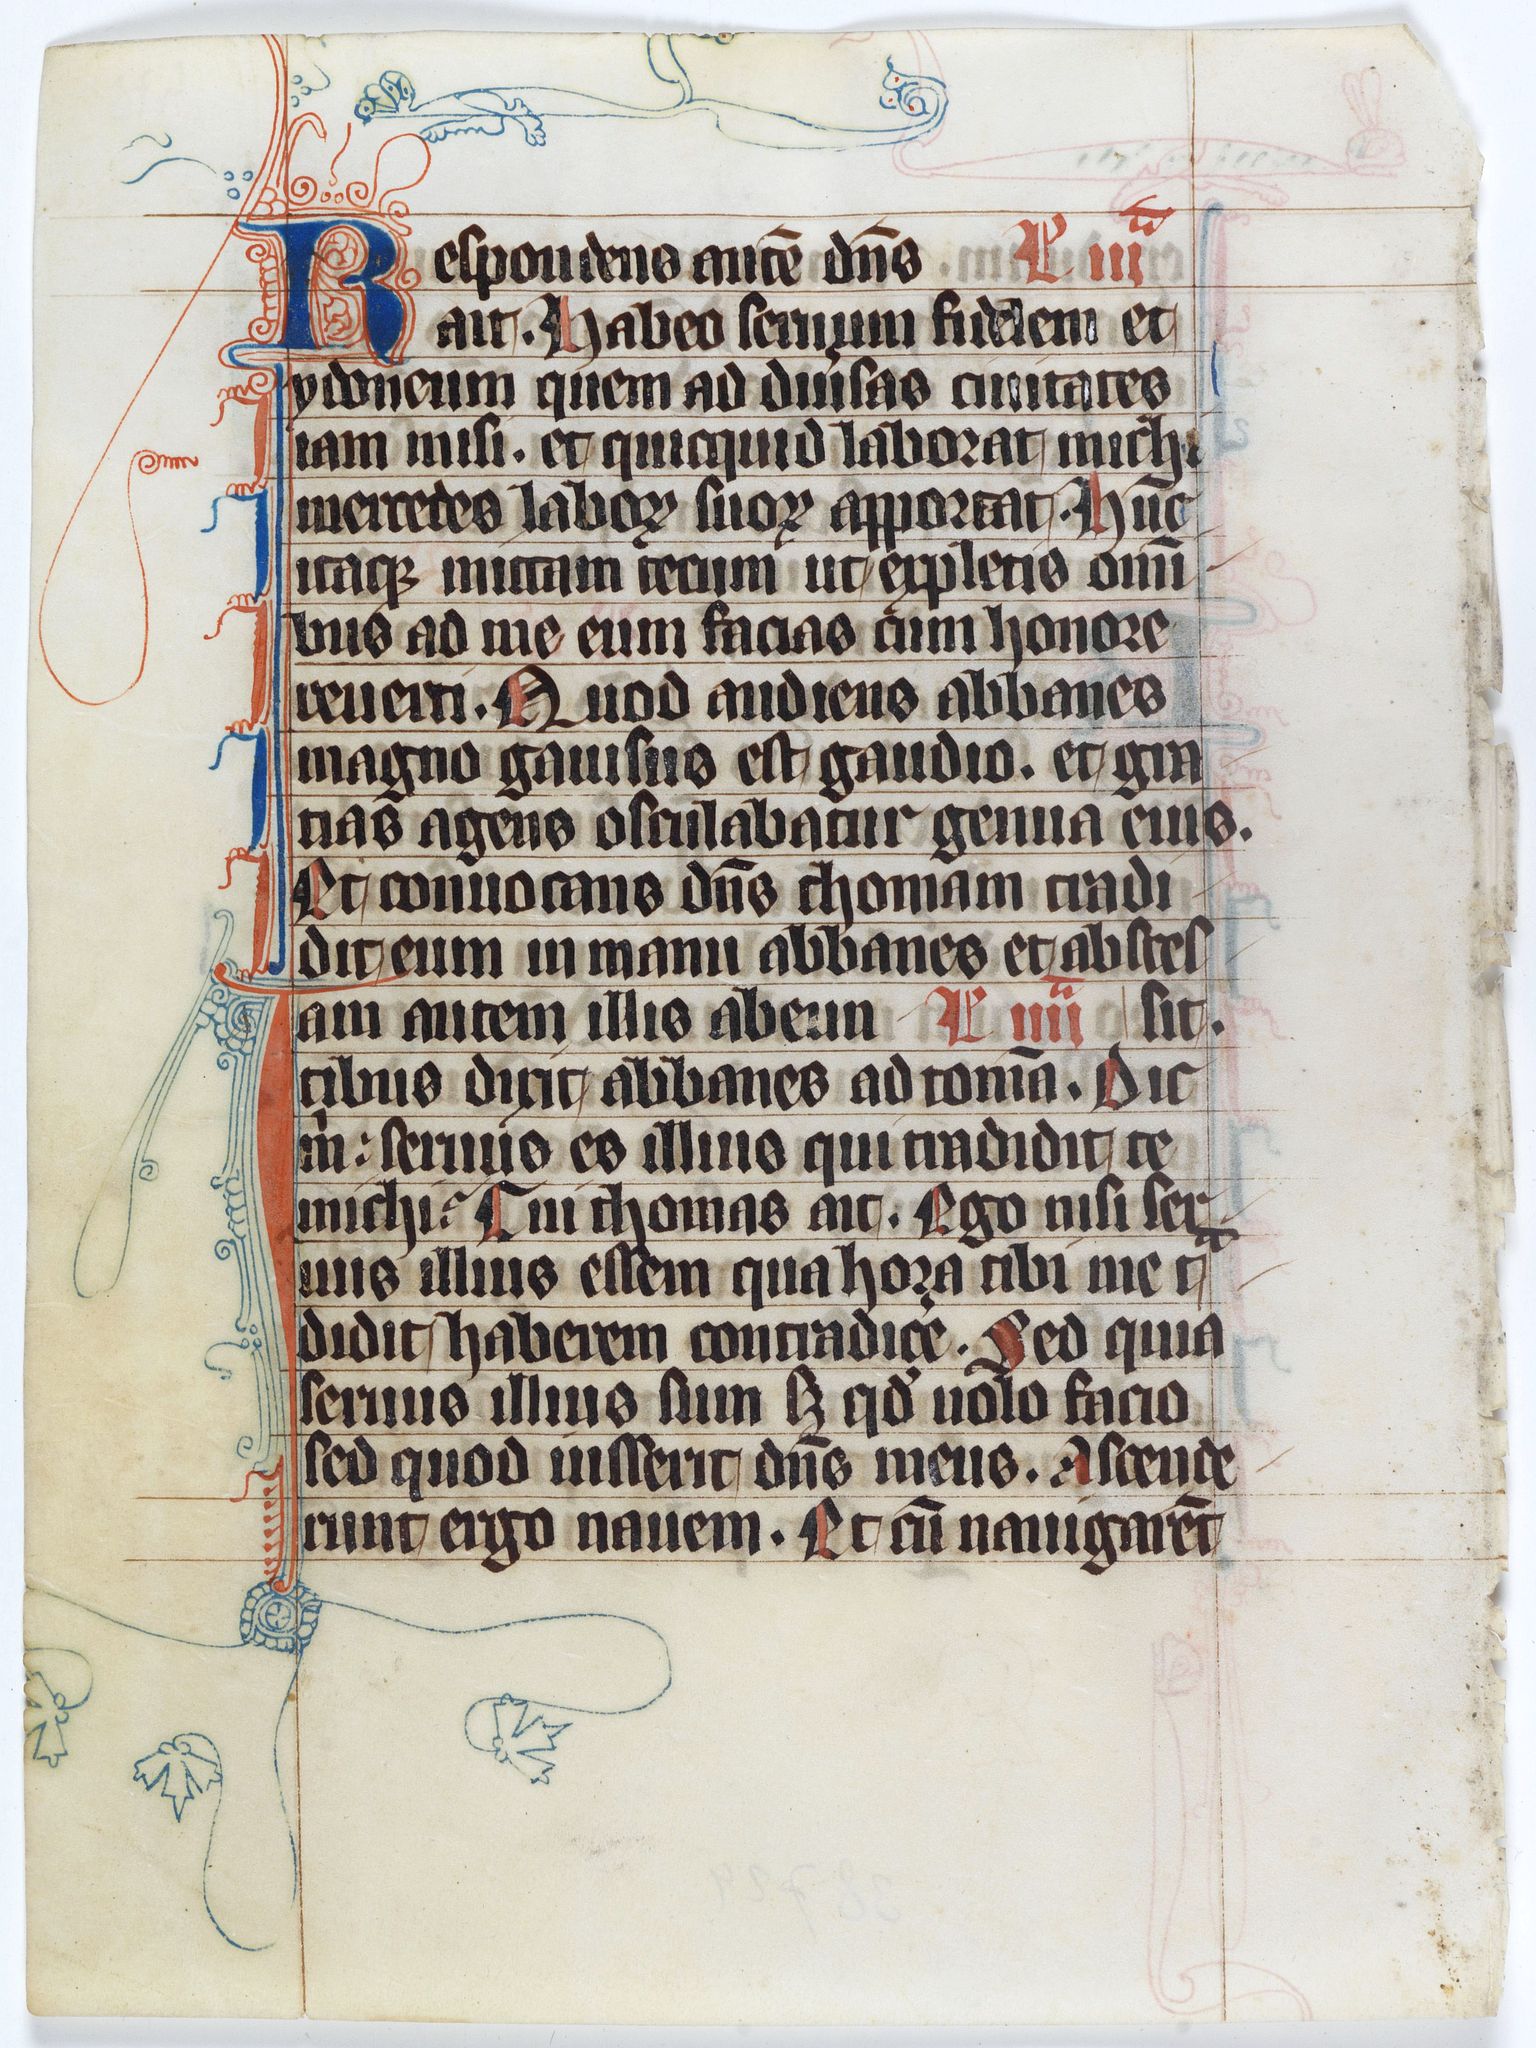 Respondens autē dn̄s . L iii^a
ait. Habeo seruum fidelem et
ydoneum quem ad diuĩsas ciuitates
iam misi. et quicquid laborat michi
mercedes laboꝝ suoꝝ apportat. Hūc
itaqꝫ mittam tecum ut expletis omī
bus ad me eum facias cum honore
reuerti. Quod audiens abbanes
magno gauisus est gaudio. et gra
tias agens osculabatur genua eius.
Et conuocans dn̄s thomam tradi
dit eum in manu abbanes et absces
Iam autem illis abeun L iiii sit.
tibus dixit abbanes ad tomā. Dic
m̄: seruus es illius qui tradidit te
michi? Cui thomas ait. Ego nisi ser
uus illius essem qua hora tibi me tͣ
didit haberem contradicę. Sed quia
seruus illius sum sꝫ qd' uolo facio
sed quod iusserit dn̄s meus. Ascende
runt ergo nauem. Et cū nauigarēt